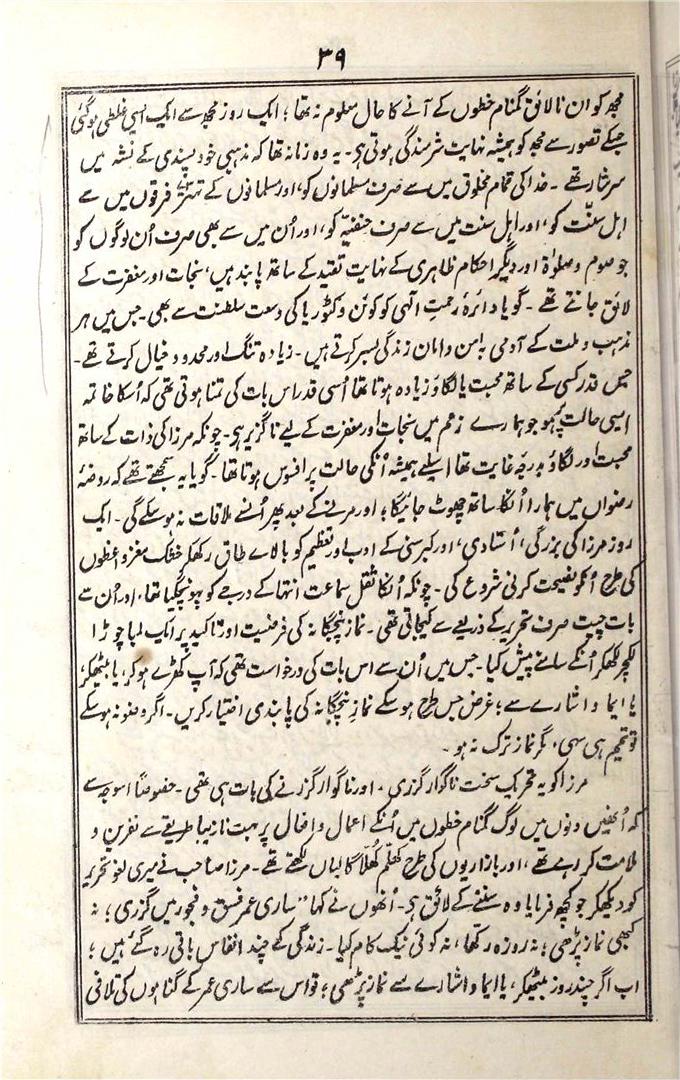 ۳۹
مجھ کو ان نالائق گمنام خطوں کے آنے کا حال معلوم نہ تھا؛ ایک روز مجھ سے ایک ایسی غلطی ہوگئی
جسکے تصور سے مجھ کو ہمیشہ نہایت شرمندگی ہوتی ہے۔ یہ وہ زمانہ تھا کہ مذہبی خود پسندی کے نشہ میں
سرشار تھے ۔ خدا کی تمام مخلوق میں سے صرف مسلمانوں کو، اور مسلمانوں کے تہتر ۷۳ فرقوں میں سے
اہل سنّت کو، اور اہل سنت میں سے صرف حنفیہ کو، اور اُن میں سے بھی صرف اُن لوگوں کو
جو صوم و صلوٰۃ اور دیگر احکام ظاہری کے نہایت تقید کے ساتھ پابند ہیں، نجات اور مغفرت کے
لائق جانتے تھے ۔ گویا دائرۂ رحمت الٰہی کو کوئن وکٹوریا کی وسعت سلطنت سے بھی ۔ جس میں ہر
مذہب و ملت کے آدمی بہ امن و امان زندگی بسر کرتے ہیں ۔ زیادہ تنگ اور محدود خیال کرتے تھے ۔
جس قدر کسی کے ساتھ محبت یا لگاؤ زیادہ ہوتا تھا اُسی قدر اس بات کی تمنا ہوتی تھی کہ اُسکا خاتمہ
ایسی حالت پر ہو جو ہمارے زعم میں نجات اور مغفرت کے لیے ناگزیر ہے۔ چونکہ مرزا کی ذات کے ساتھ
محبت اور لگاؤ بدرجہ غایت تھا اسلیے ہمیشہ اُنکی حالت پر افسوس ہوتا تھا ۔ گویا یہ سمجھتے تھے کہ روضۂ
رضواں میں ہمارا اُنکا ساتھ چھوٹ جائیگا؛ اور مرنے کے بعد پھر اُنسے ملاقات نہ ہوسکے گی ۔ ایک
روز مرزا کی بزرگی، اُستادی، اور کبر سنی کے ادب اور تعظیم کو بالاے طاق رکھکر خشک مغز واعظوں
کی طرح اُنکو نصیحت کرنی شروع کی ۔ چونکہ اُنکا ثقل سماعت انتہا کے درجے کو پہونچ گیا تھا، اور اُن سے
بات چیت صرف تحریر کے ذریعے سے کیجاتی تھی ۔ نماز پنجگانہ کی فرضیت اور تاکید پر ایک لمبا چوڑا
لکچر لکھکر اُنکے سامنے پیش کیا ۔ جس میں اُن سے اس بات کی درخواست تھی کہ آپ کھڑے ہوکر، یا بیٹھکر،
یا ایما و اشارے سے؛ غرض جس طرح ہوسکے نماز پنجگانہ کی پابندی اختیار کریں ۔ اگر وضو نہ ہوسکے
تو تیمم ہی سہی، مگر نماز ترک نہ ہو ۔
مرزا کو یہ تحریک سخت ناگوار گزری ، اور ناگوار گزرنے کی بات ہی تھی ۔ خصوصاً اسوجہ سے
کہ اُنھیں دنوں میں لوگ گمنام خطوں میں اُنکے اعمال و افعال پر بہت نازیبا طریقے سے نفرین و
ملامت کر رہے تھے ، اور بازاریوں کی طرح کھلّم کُھلّا گالیاں لکھتے تھے ۔ مرزا صاحب نے میری لغو تحریر
کو دیکھکر جو کچھ فرمایا وہ سننے کے لائق ہے۔ اُنھوں نے کہا "ساری عمر فسق و فجور میں گزری؛ نہ
کبھی نماز پڑھی؛ نہ روزہ رکھا، نہ کوئی نیک کام کیا ۔ زندگی کے چند انفاس باقی رہ گئے ہیں ؛
اب اگر چند روز بیٹھکر، یا ایما و اشارے سے نماز پڑھی؛ تو اس سے ساری عمر کے گناہوں کی تلافی